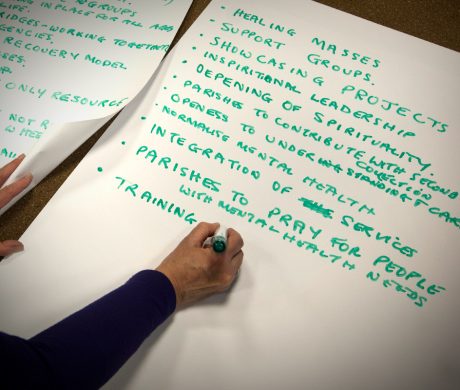 GROUPS
IN PLACE FOR ALL AGE
RIDGES - WORKING TOGETHER
GENCIES.
RECOVERY MODEL
ONLY RESOURCE
NOT R
• HEALING MASSES
• SUPPORT GROUPS.
• SHOWCASING PROJECTS
• INSPIRITIONAL LEADERSHIP
• DEPENING OF SPIRITUALITY.
• PARISHES TO CONTRIBUTE WITH SECOND
COLLECTION
• OPENESS TO UNDERSTANDING & CAR
• NORMALISE MENTAL HEALTH
• INTEGRATION OF SERVICES
• PARISHES TO PRAY FOR PEOPLE
WITH MENTAL HEALTH NEEDS
• TRAINING